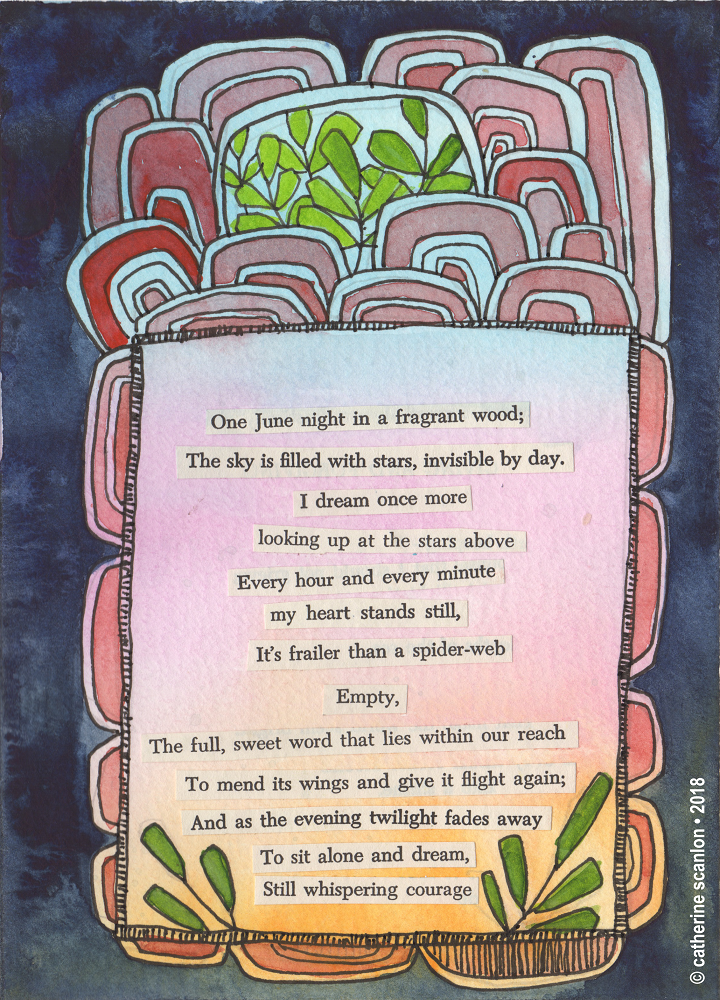 One June night in a fragrant wood;
The sky is filled with stars, invisible by day.
I dream once more
looking up at the stars above
Every hour and every minute
my heart stands still,
It's frailer than a spider-web
Empty,
The full, sweet word that lies within our reach
To mend its wings and give it flight again;
And as the evening twilight fades away
To sit alone and dream,
Still whispering courage
© catherine scanlon • 2018